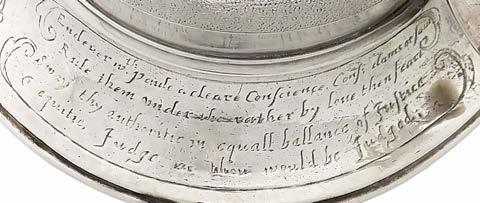 Endever wth Paule a cleare Conscience.
Rule them under rather by love then feare
Sway thy authoritie in equall ballance of Justice
& equitie Judge as thou would be Judged